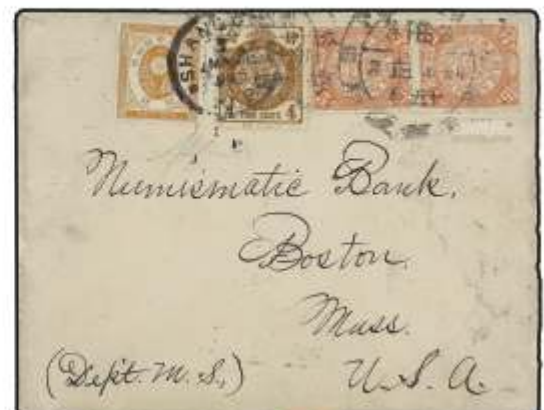 SHANG
4
Numismatic Bank,
Boston
Mass.
(Dept. M. S.,) U. S. A.